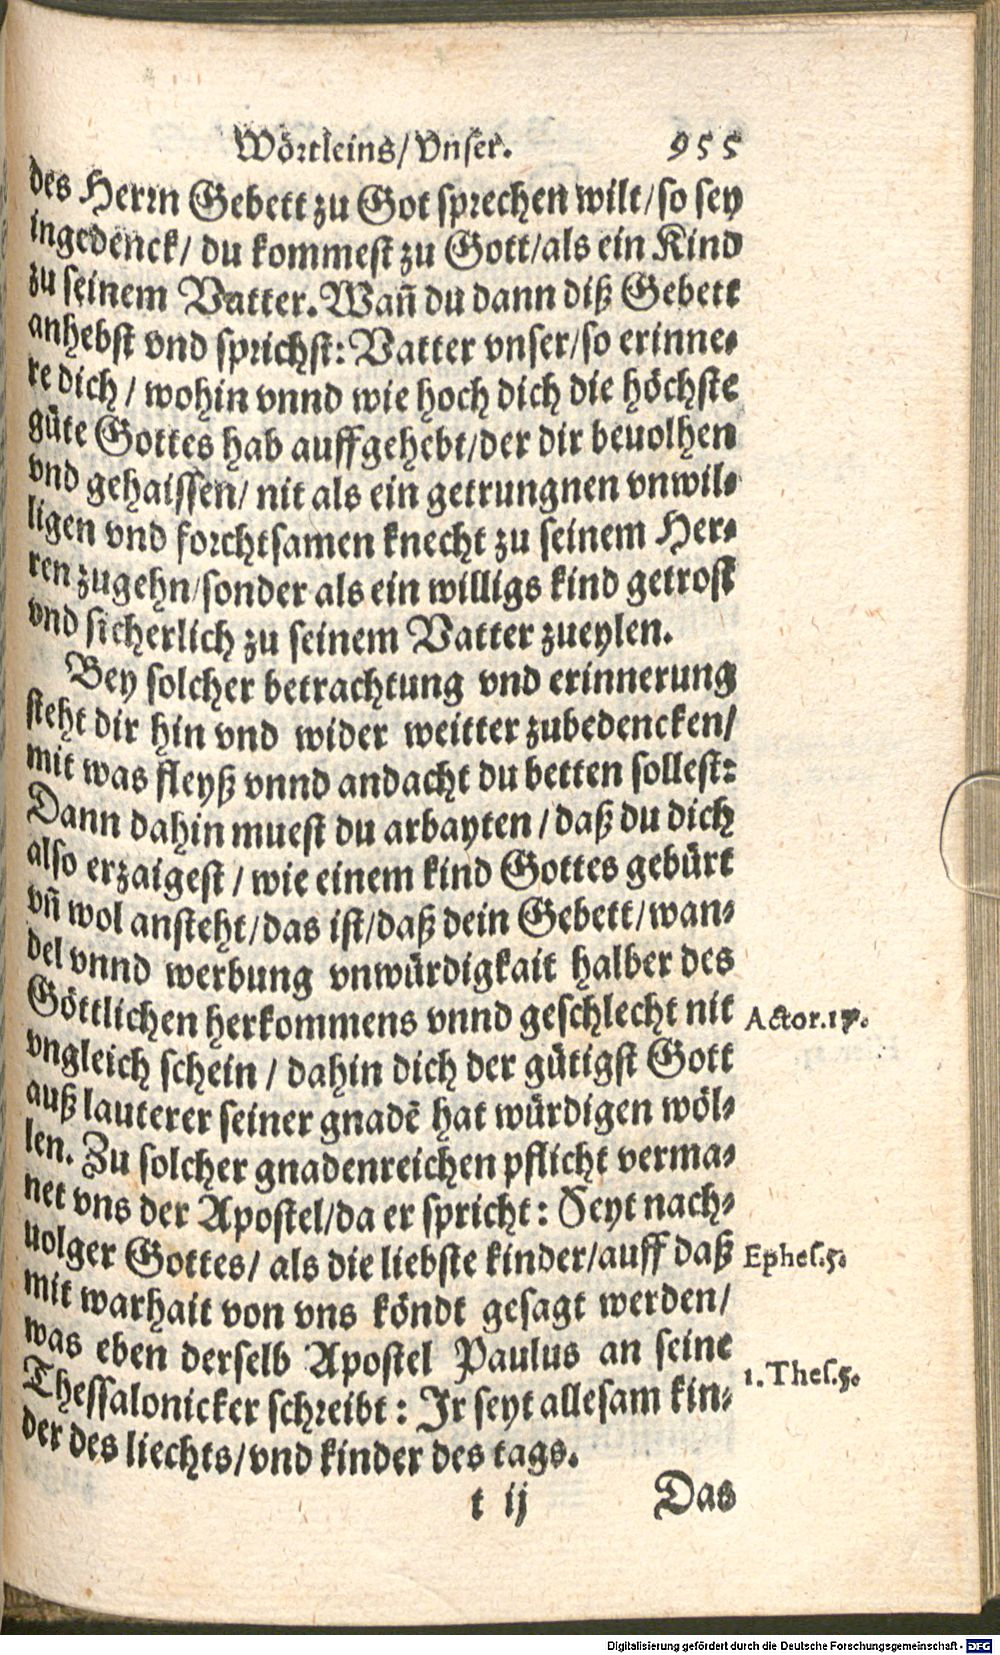 Wörtleins/ Vnser. 955
des Herrn Gebett zu Got sprechen wilt/ so sey
ingedenck/ du kommest zu Gott/ als ein Kind
zu seinem Vatter. Wañ du dann diß Gebett
anhebst vnd sprichst: Vatter vnser/ so erinne-
re dich/ wohin vnnd wie hoch dich die höchste
güte Gottes hab auffgehebt/ der dir beuolhen
vnd gehaissen/ nit als ein getrungnen vnwil-
ligen vnd forchtsamen knecht zu seinem Her-
ren zugehn/ sonder als ein willigs kind getrost
vnd sicherlich zu seinem Vatter zueylen.
Bey solcher betrachtung vnd erinnerung
steht dir hin vnd wider weitter zubedencken/
mit was fleyß vnnd andacht du betten sollest:
Dann dahin muest du arbayten/ daß du dich
also erzaigest/ wie einem kind Gottes gebürt
vñ wol ansteht/ das ist/ daß dein Gebett/ wan-
del vnnd werbung vnwürdigkait halber des
Göttlichen herkommens vnnd geschlecht nit
Actor. 17.
vngleich schein/ dahin dich der gütigst Gott
auß lauterer seiner gnadē hat würdigen wöl-
len. Zu solcher gnadenreichen pflicht verma-
net vns der Apostel/ da er spricht: Seyt nach-
uolger Gottes/ als die liebste kinder/ auff daß
Ephes. 5.
mit warhait von vns köndt gesagt werden/
was eben derselb Apostel Paulus an seine
1. Thes. 5.
Thessalonicker schreibt: Ir seyt allesam kin-
der des liechts/ vnd kinder des tags.
t ij Das
Digitalisierung gefördert durch die Deutsche Forschungsgemeinschaft - DFG